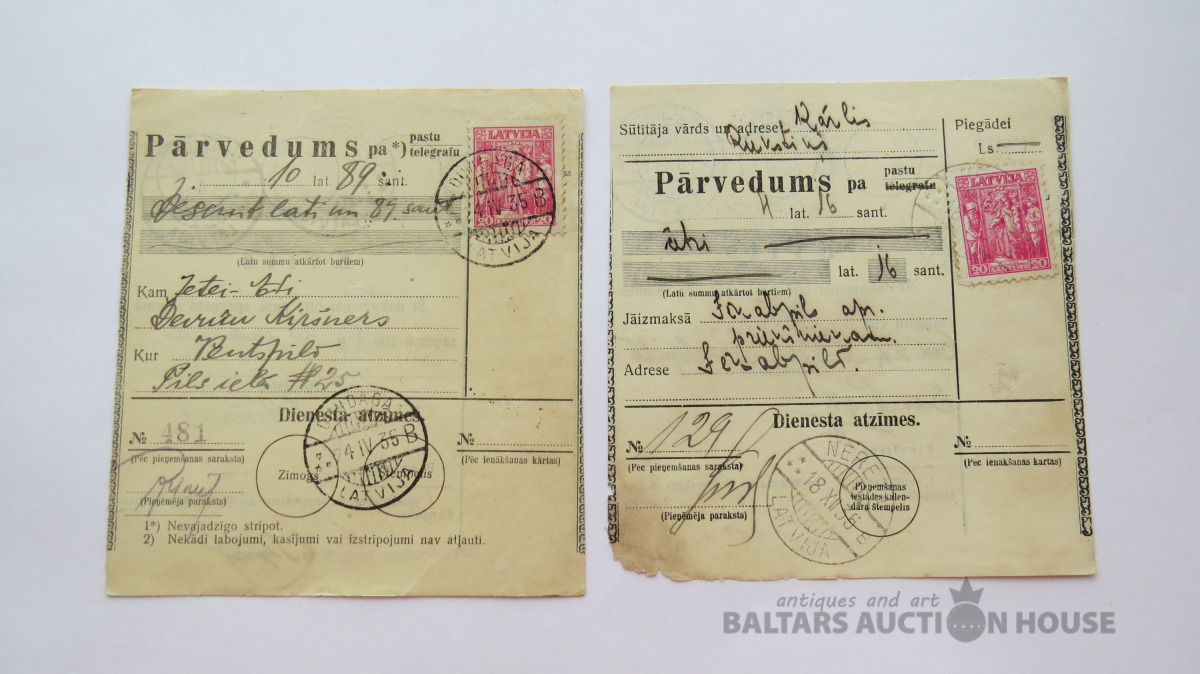 Pārvedums pa *) pastu telegrafu
10 lat. 89 sant.
lati un 89. sant
(Latu summu atkārtot burtiem)
Kam
Kur Ventspils
Pils ielā #25
Dienesta atzīmes.
№ 481
(Pēc pieņemšanas saraksta)
(Pieņēmēja paraksts)
Zīmogs
№
(Pēc ienākšanas kārtas)
1*) Nevajadzīgo strīpot.
2) Nekādi labojumi, kasījumi vai izstrīpojumi nav atļauti.
LATVIJA
20 20
DUNDAGA
24 IV 35 B
LATVIJA
DUNDAGA
24 IV 35 B
LATVIJA
Sūtītāja vārds un adrese Kārlis
Piegādei
Ls.
Pārvedums pa pastu telegrafu
lat. 16 sant.
lat. 16 sant.
(Latu summu atkārtot burtiem)
Jāizmaksā Jēkabpils apr.
priekšniekam
Adrese Jēkabpils.
LATVIJA
20 SANTIMU 20
Dienesta atzīmes.
№ 129
(Pēc pieņemšanas saraksta)
(Pieņēmēja paraksts)
NERE
18 XII 35
LATVIJA
B
Pieņemšanas iestādes kalendāra štempelis
№
(Pēc ienākšanas kārtas)
antiques and art
BALTARS AUCTION HOUSE